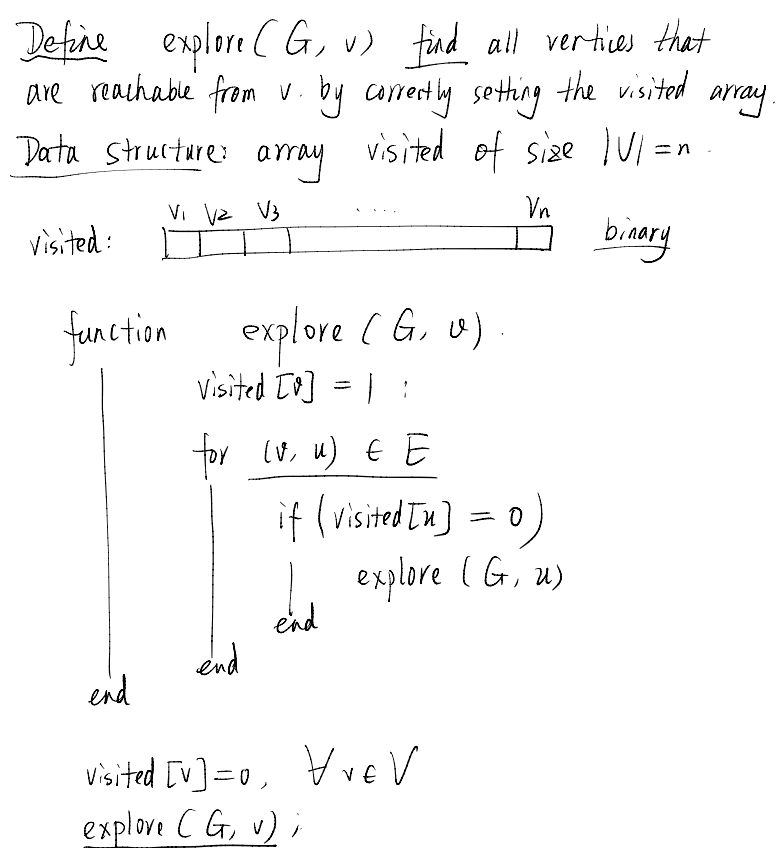 Define explore (G, v) find all vertices that
are reachable from v. by correctly setting the visited array.
Data structure: array visited of size |V| = n.
V1 V2 V3 .... Vn
visited: binary
function explore (G, v).
visited [v] = 1 ;
for (v, u) ∈ E
if (visited [u] = 0)
explore (G, u)
end
end
end
visited [v] = 0, ∀ v ∈ V
explore (G, v) ;